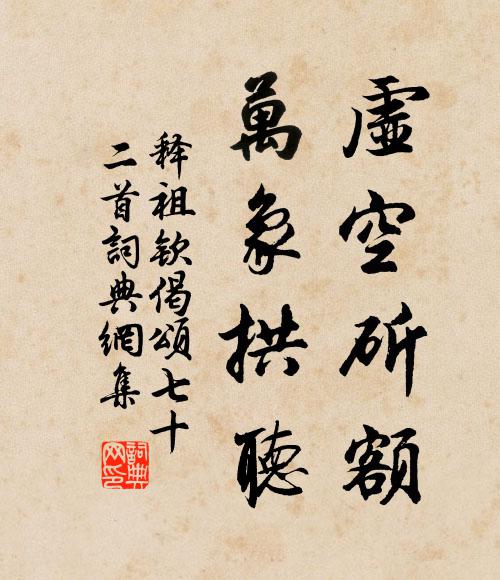 虛空斫額
萬象拱聽
释祖欽偈頌七十
二首詞典網集
詞典网印